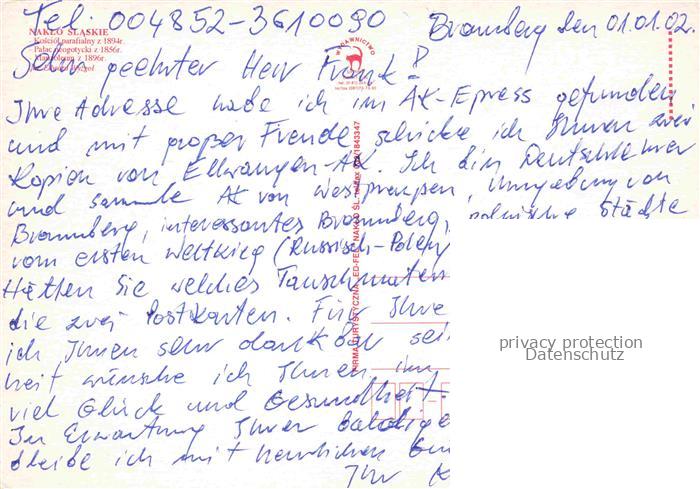 Tel. 004852-3610080
Bromberg den 01.01.02.
NAKŁO ŚLĄSKIE
Kościół parafialny z 1894r.
Pałac neogotycki z 1856r.
Mauzoleum z 1896r.
WYDAWNICTWO
Sehr geehrter Herr Frank!
Ihre Adresse habe ich im AK-Epress gefunden
und mit großer Freude schicke ich Ihnen zwei
Kopien von Ellwangen-AK. Ich bin Deutschlehrer
und sammle AK von Westpreußen, Umgebung von
Bromberg, interessantes Bromberg, polnische Städte
vom ersten Weltkrieg (Russisch-Polen)
Hätten Sie welches Tauschmaterial
die zwei Postkarten. Für Ihre
ich Ihnen sehr dankbar sei
heit wünsche ich Ihnen im
viel Glück und Gesundheit.
In Erwartung Ihrer baldige
bleibe ich mit herzlichen
Ihr K
privacy protection
Datenschutz